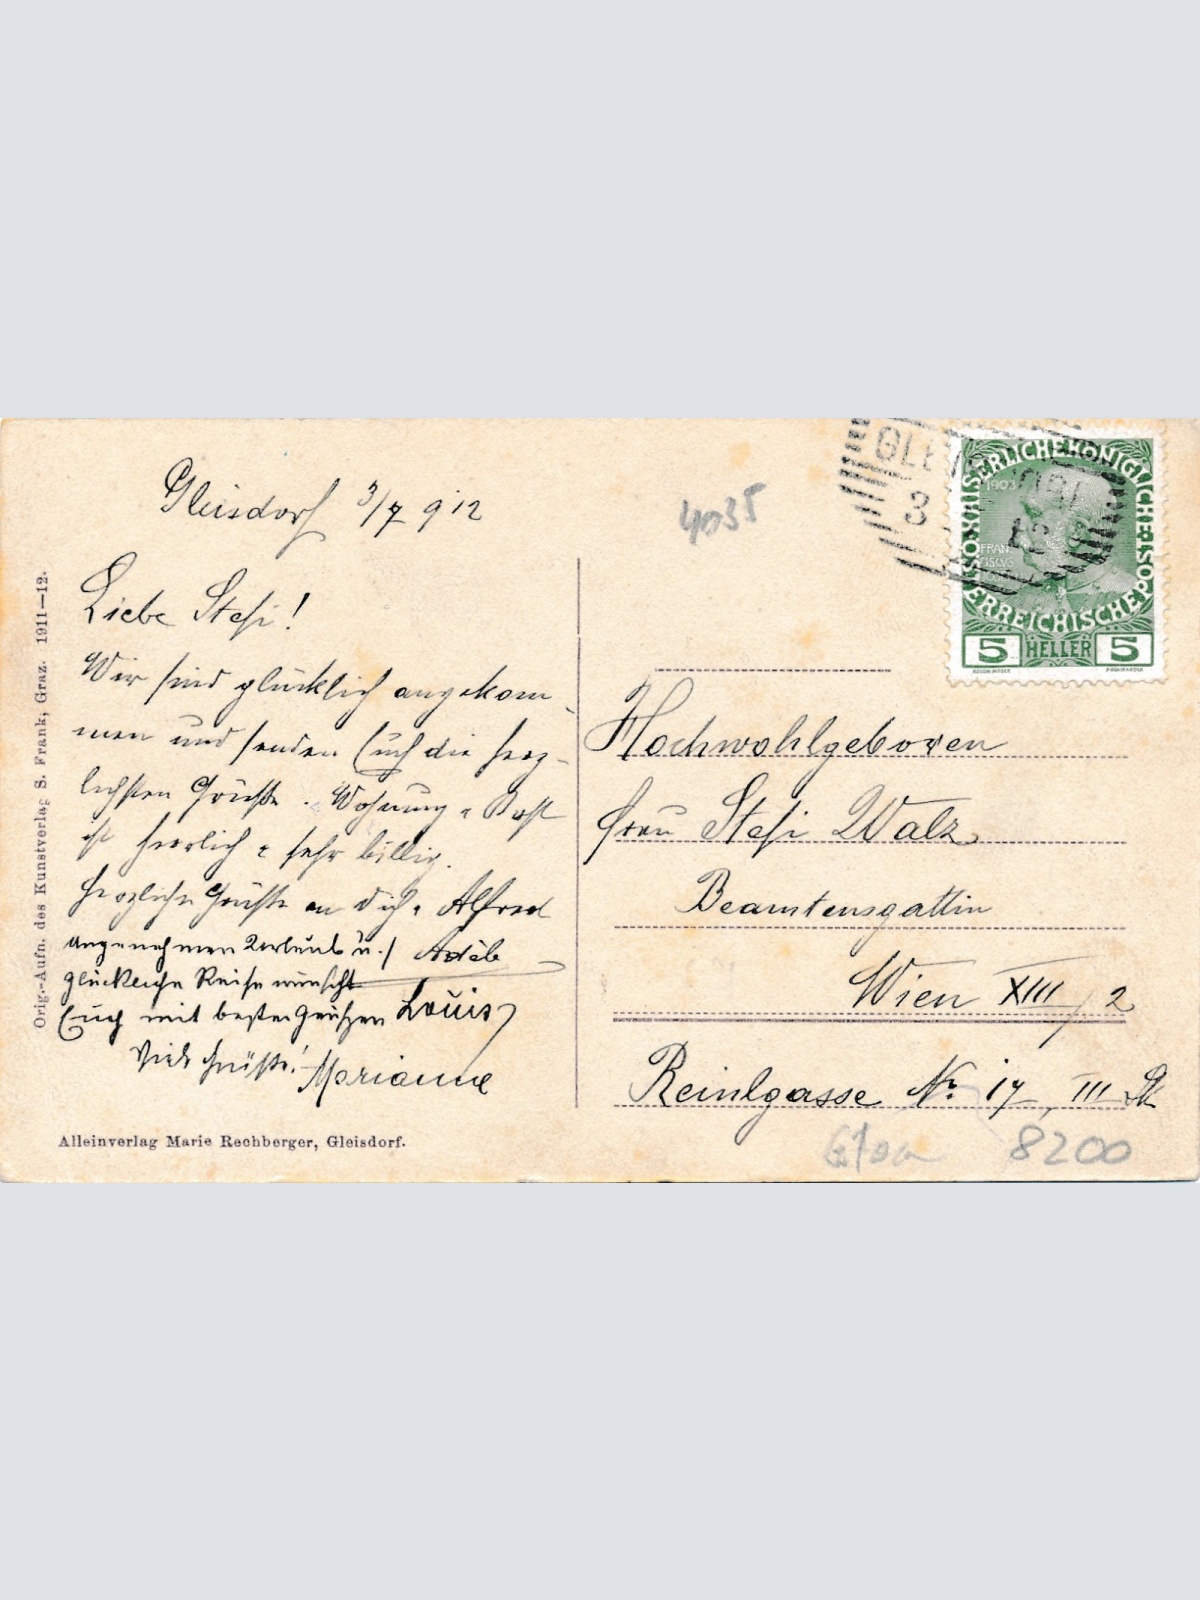 Gleisdorf 3/7 912
Liebe Stefi!
Wir sind glücklich angekom-
men und senden Euch die herz-
lichsten Grüße. Wohnung u. Kost
ist herrlich u. sehr billig.
Herzliche Grüße an Dich u. Alfred
angenehmen Verlauf u. / Adèle
glückliche Reise wünscht
Euch mit besten Grüßen Louis
Viele Grüße! Marianne
Alleinverlag Marie Rechberger, Gleisdorf.
Orig.-Aufn. des Kunstverlag S. Frank, Graz. 1911—12.
4035
GLEISDORF
3
KAISERLICHE KÖNIGLICHE ÖSTERREICHISCHE POST
1908
FRAN
CISCVS
5 HELLER 5
Hochwohlgeboren
Frau Stefi Walz
Beamtensgattin
Wien XIII/2
Reinlgasse Nr. 17, III St
8200